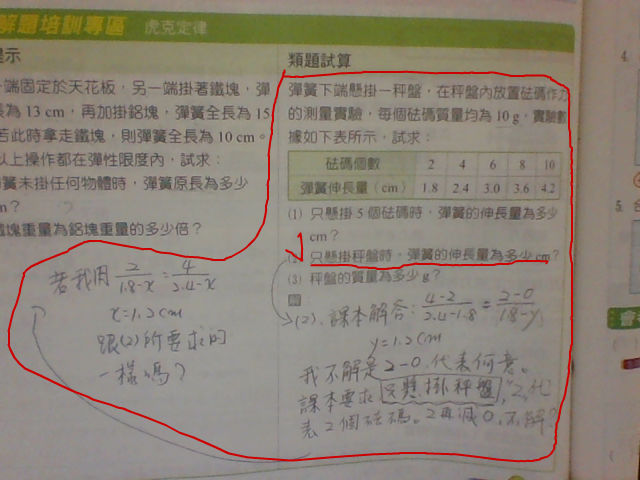 解題培訓專區 虎克定律
示
端固定於天花板,另一端掛著鐵塊,彈
為 13 cm,再加掛鋁塊,彈簧全長為 15
若此時拿走鐵塊,則彈簧全長為 10 cm。
以上操作都在彈性限度內,試求:
簧未掛任何物體時,彈簧原長為多少
m?
鐵塊重量為鋁塊重量的多少倍?
若我用 2/1.8-x = 4/2.4-x
x=1.2cm
跟(2)所要求的
一樣嗎?
類題試算
彈簧下端懸掛一秤盤,在秤盤內放置砝碼作力
的測量實驗,每個砝碼質量均為 10 g,實驗數
據如下表所示,試求:
砝碼個數 2 4 6 8 10
彈簧伸長量(cm) 1.8 2.4 3.0 3.6 4.2
(1) 只懸掛 5 個砝碼時,彈簧的伸長量為多少
cm?
只懸掛秤盤時,彈簧的伸長量為多少 cm?
(3) 秤盤的質量為多少 g?
(2).課本解答: 4-2/2.4-1.8 = 2-0/1.8-y
y=1.2cm
我不解是2-0.代表何意。
課本要求只懸掛秤盤,"2"代
表2個砝碼。2再減0,不解?
4.
5.